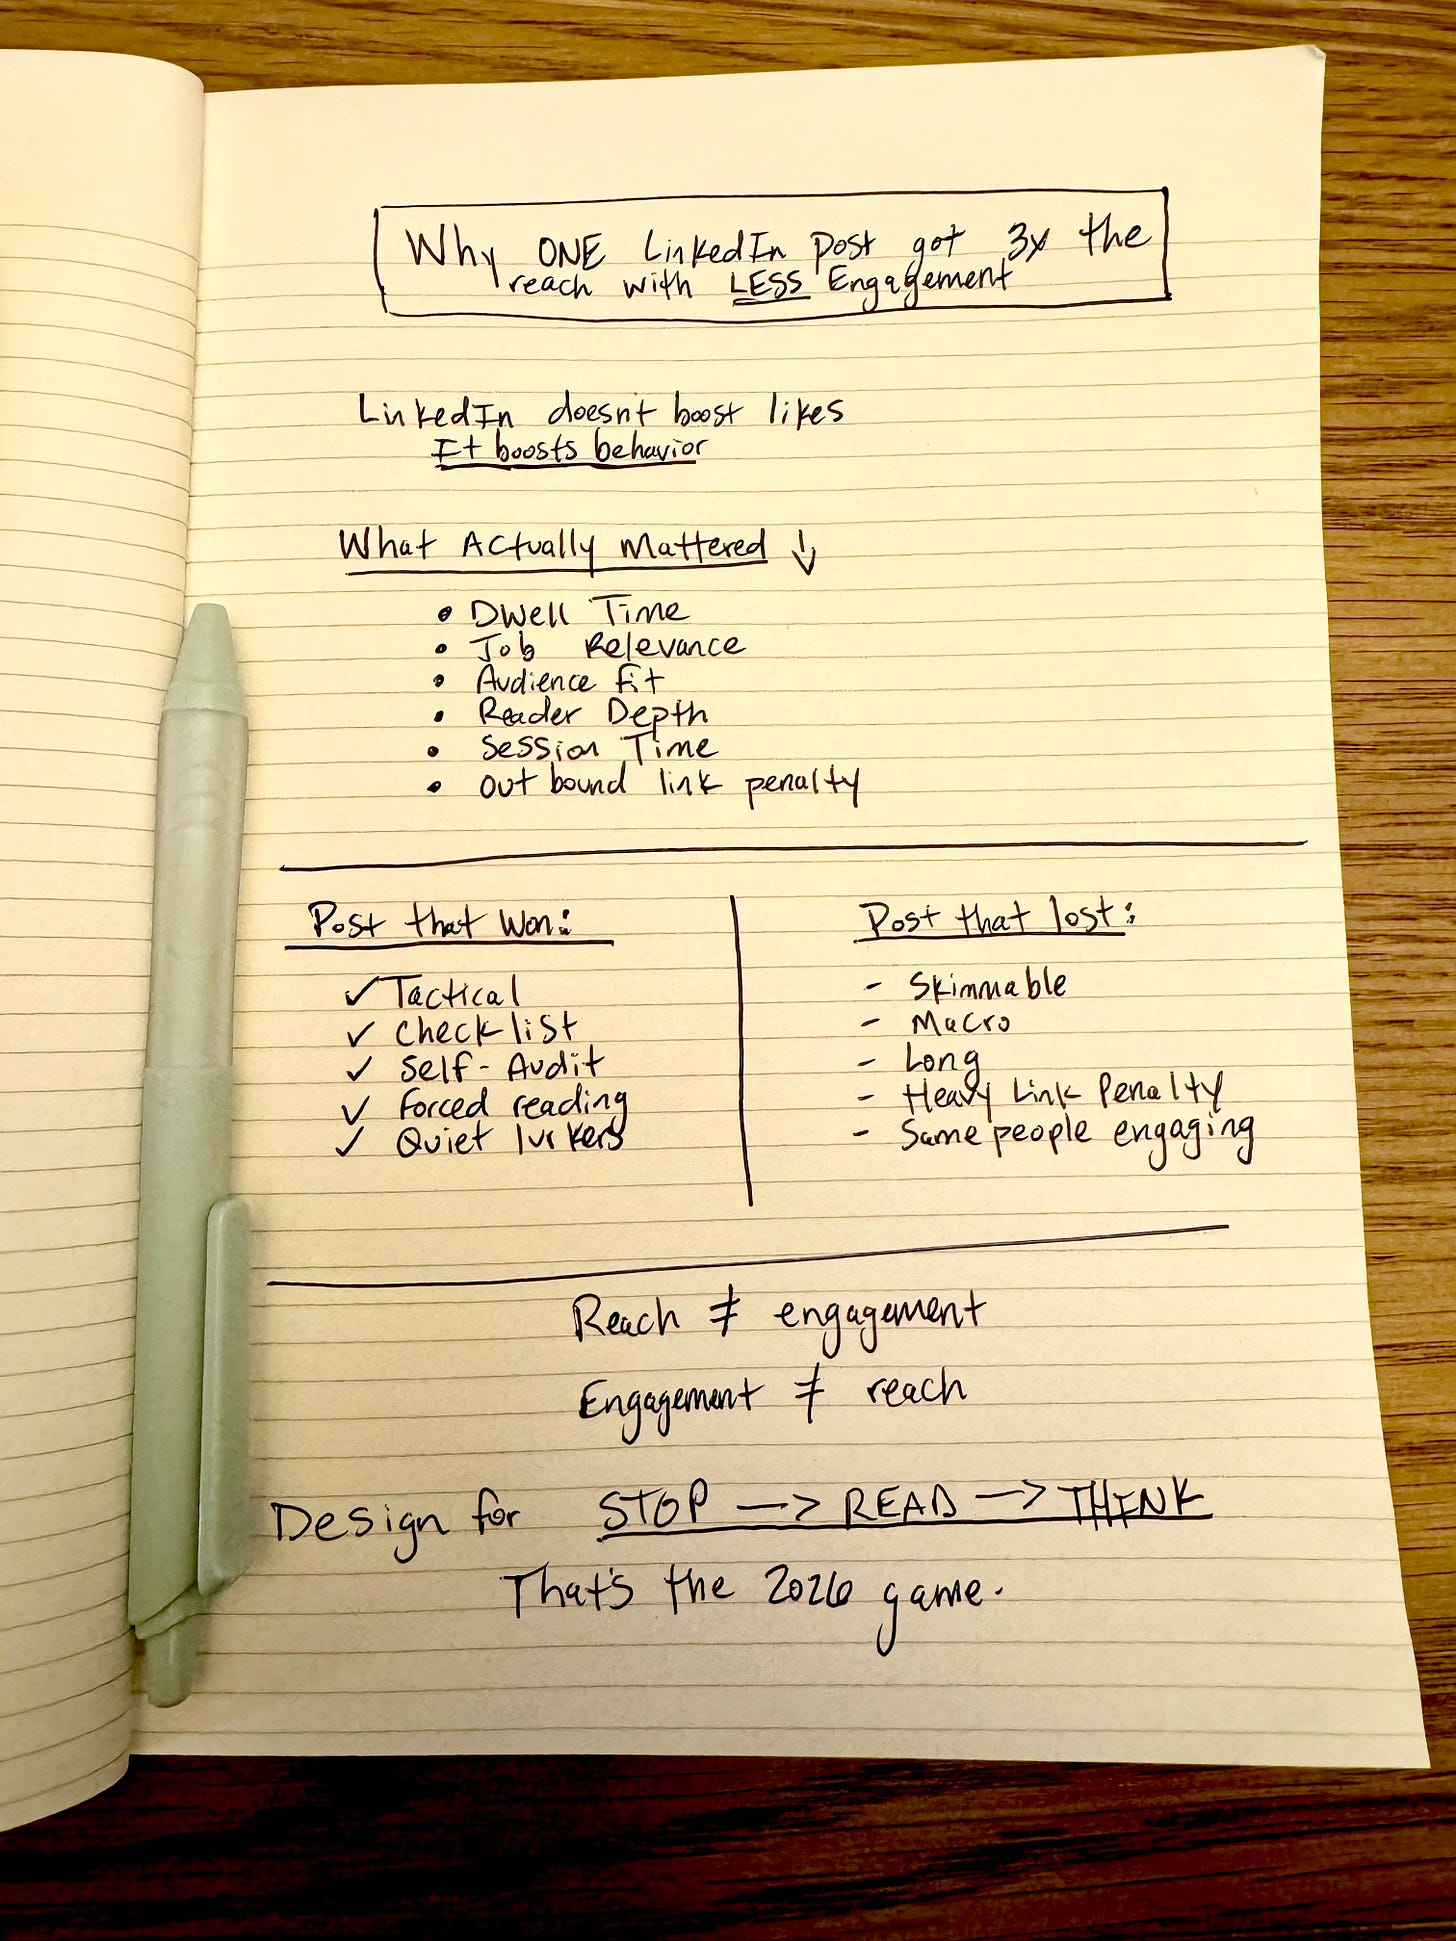 Why ONE LinkedIn post got 3x the
reach with LESS Engagement
LinkedIn doesn't boost likes
It boosts behavior
What Actually Mattered ↓
• Dwell Time
• Job Relevance
• Audience fit
• Reader Depth
• Session Time
• Outbound link penalty
Post that won:
✓ Tactical
✓ Checklist
✓ Self-Audit
✓ Forced reading
✓ Quiet lurkers
Post that lost:
- Skimmable
- Macro
- Long
- Heavy Link Penalty
- Same people engaging
Reach ≠ engagement
Engagement ≠ reach
Design for STOP —> READ —> THINK
That's the 2026 game.